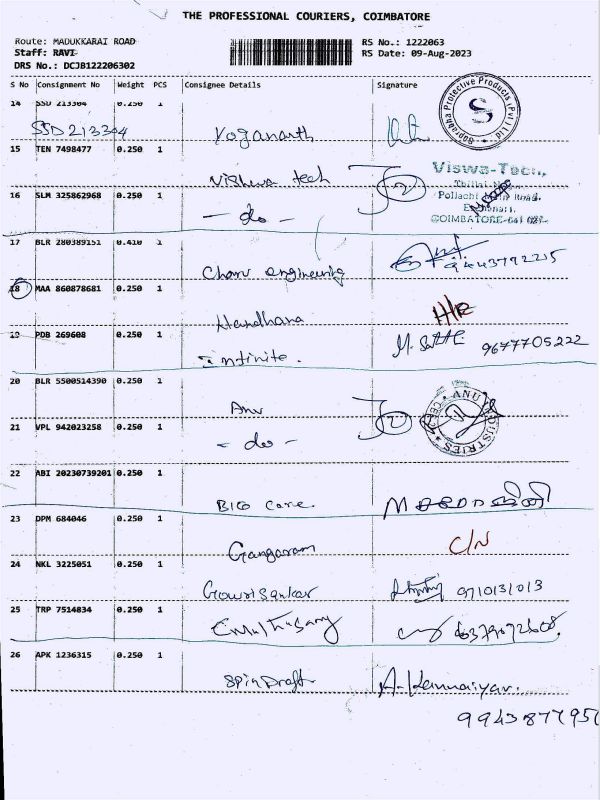 THE PROFESSIONAL COURIERS, COIMBATORE
Route: MADUKKARAI ROAD
Staff: RAVI
DRS No.: DCJB122206302
RS No.: 1222063
RS Date: 09-Aug-2023
S No Consignment No Weight PCS Consignee Details Signature
14 SSD 213304 0.250 1
SSD 213304 Yogananth
Saprabha Protective Products (Pvt) Ltd S
15 TEN 7498477 0.250 1
Vishwa tech 2
Viswa-Tech,
Pollachi Main Road,
COIMBATORE-641 021.
16 SLM 325862968 0.250 1
- do -
17 BLR 280389151 0.410 1
Charu engineering 9443792215
18 MAA 860878681 0.250 1
Handhana
19 PDB 269608 0.250 1
Infinite. 9677705222
20 BLR 5500514390 0.250 1
Anu 2
ANU INDUSTRIES
21 VPL 942023258 0.250 1
- do -
22 ABI 20230739201 0.250 1
BIG Care.
23 DPM 684046 0.250 1
Gangaram C/N
24 NKL 3225051 0.250 1
Gowri Sankar 9710131013
25 TRP 7514834 0.250 1
26 APK 1236315 0.250 1
Spin Draft A. Kannaiyan.